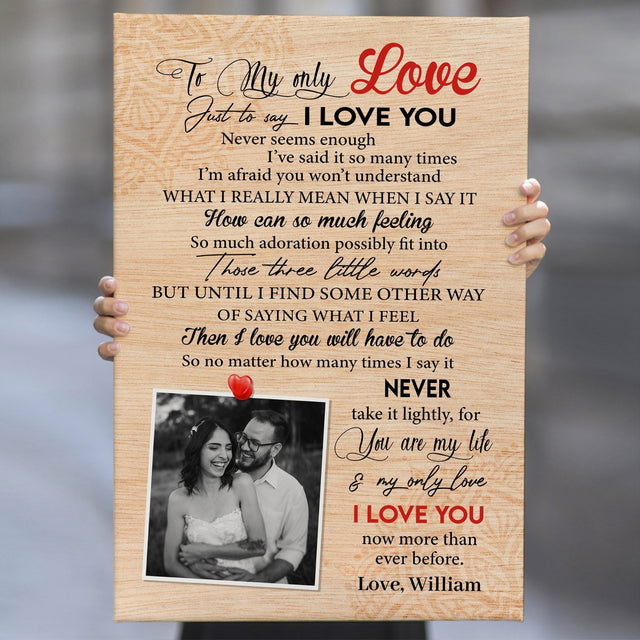 To My only Love
Just to say I LOVE YOU
Never seems enough
I've said it so many times
I'm afraid you won't understand
WHAT I REALLY MEAN WHEN I SAY IT
How can so much feeling
So much adoration possibly fit into
Those three little words
BUT UNTIL I FIND SOME OTHER WAY
OF SAYING WHAT I FEEL
Then I love you will have to do
So no matter how many times I say it
NEVER
take it lightly, for
You are my life
& my only love
I LOVE YOU
now more than
ever before.
Love, William